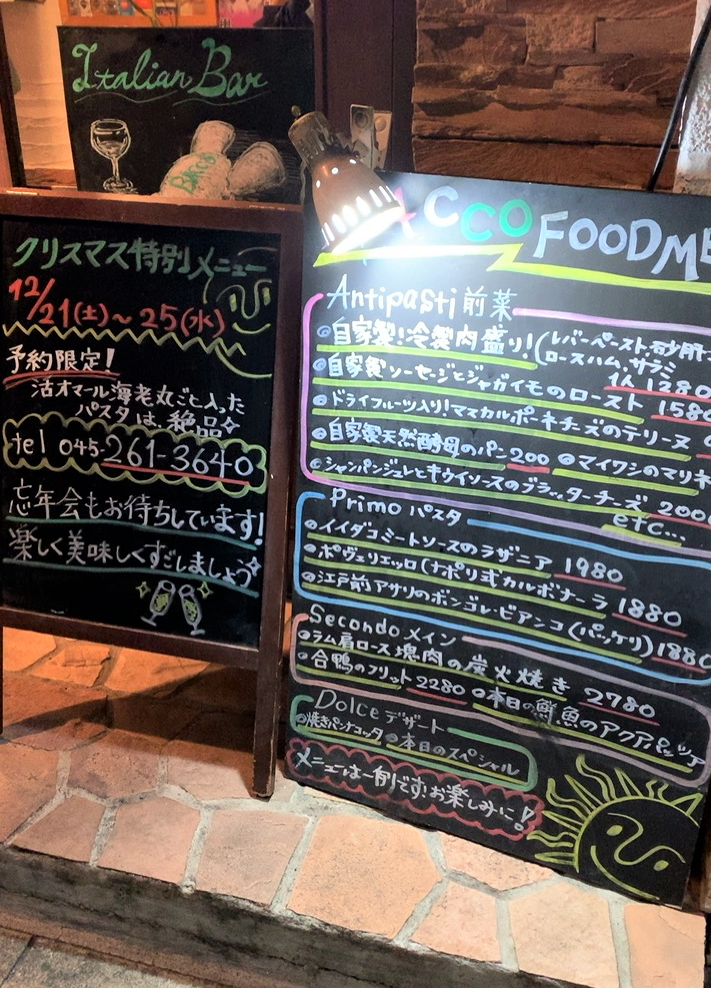 Italian Bar
Bacco
クリスマス特別メニュー
12/21(土)～25(水)
予約限定!
活オマール海老丸ごと入った
パスタは、絶品
tel 045-261-3640
忘年会もお待ちしています!
楽しく美味しくすごしましょう
CCO FOOD ME
Antipasti 前菜
自家製!冷製肉盛り!(レバーペースト,砂肝
ロースハム,サラミ
1人 1280
自家製ソーセージとジャガイモのロースト 1580
ドライフルーツ入り!ママカルポーネチーズのテリーヌ
自家製天然酵母のパン200 マイワシのマリネ
シャンパンジュレとキウイソースのブラッターチーズ 2000
etc...
Primo パスタ
イイダコミートソースのラザニア 1980
ポヴェリエッロ(ナポリ式カルボナーラ 1880
江戸前アサリのボンゴレ・ビアンコ(パッケリ) 1880
Secondo メイン
ラム肩ロース塊肉の炭火焼き 2780
合鴨のフリット 2280 本日の鮮魚のアクアパッツァ
Dolce デザート
焼きパンナコッタ 本日のスペシャル
メニューは一例です!お楽しみに!